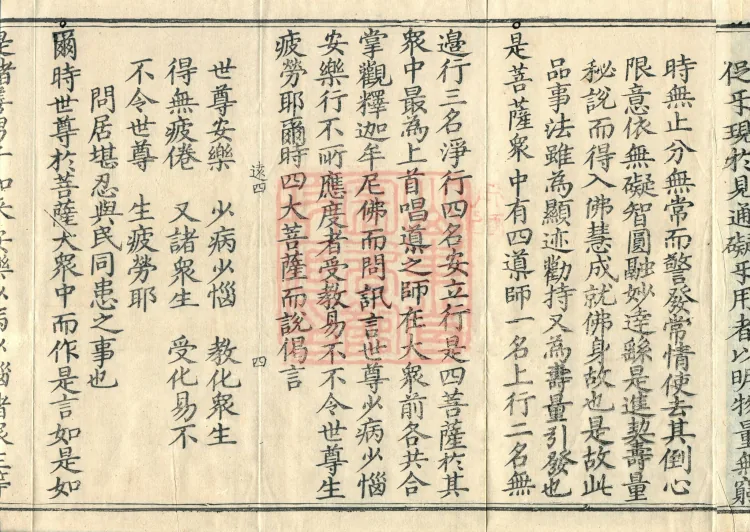 促乎現於見通礙乎用者以明物量無窮
時無止分無常而警發常情使去其倒心
限意依無礙智圓融妙達繇是進契壽量
秘說而得入佛慧成就佛身故也是故此
品事法雖為顯迹勸持又為壽量引發也
是菩薩衆中有四導師一名上行二名無
邊行三名淨行四名安立行是四菩薩於其
衆中最為上首唱導之師在大衆前各共合
掌觀釋迦牟尼佛而問訊言世尊少病少惱
安樂行不所應度者受教易不不令世尊生
疲勞耶爾時四大菩薩而說偈言
遠四
四
世尊安樂 少病少惱 教化衆生
得無疲倦 又諸衆生 受化易不
不令世尊 生疲勞耶
問居堪忍與民同患之事也
爾時世尊於菩薩大衆中而作是言如是如
是諸善男子如來安樂少病少惱諸衆生等